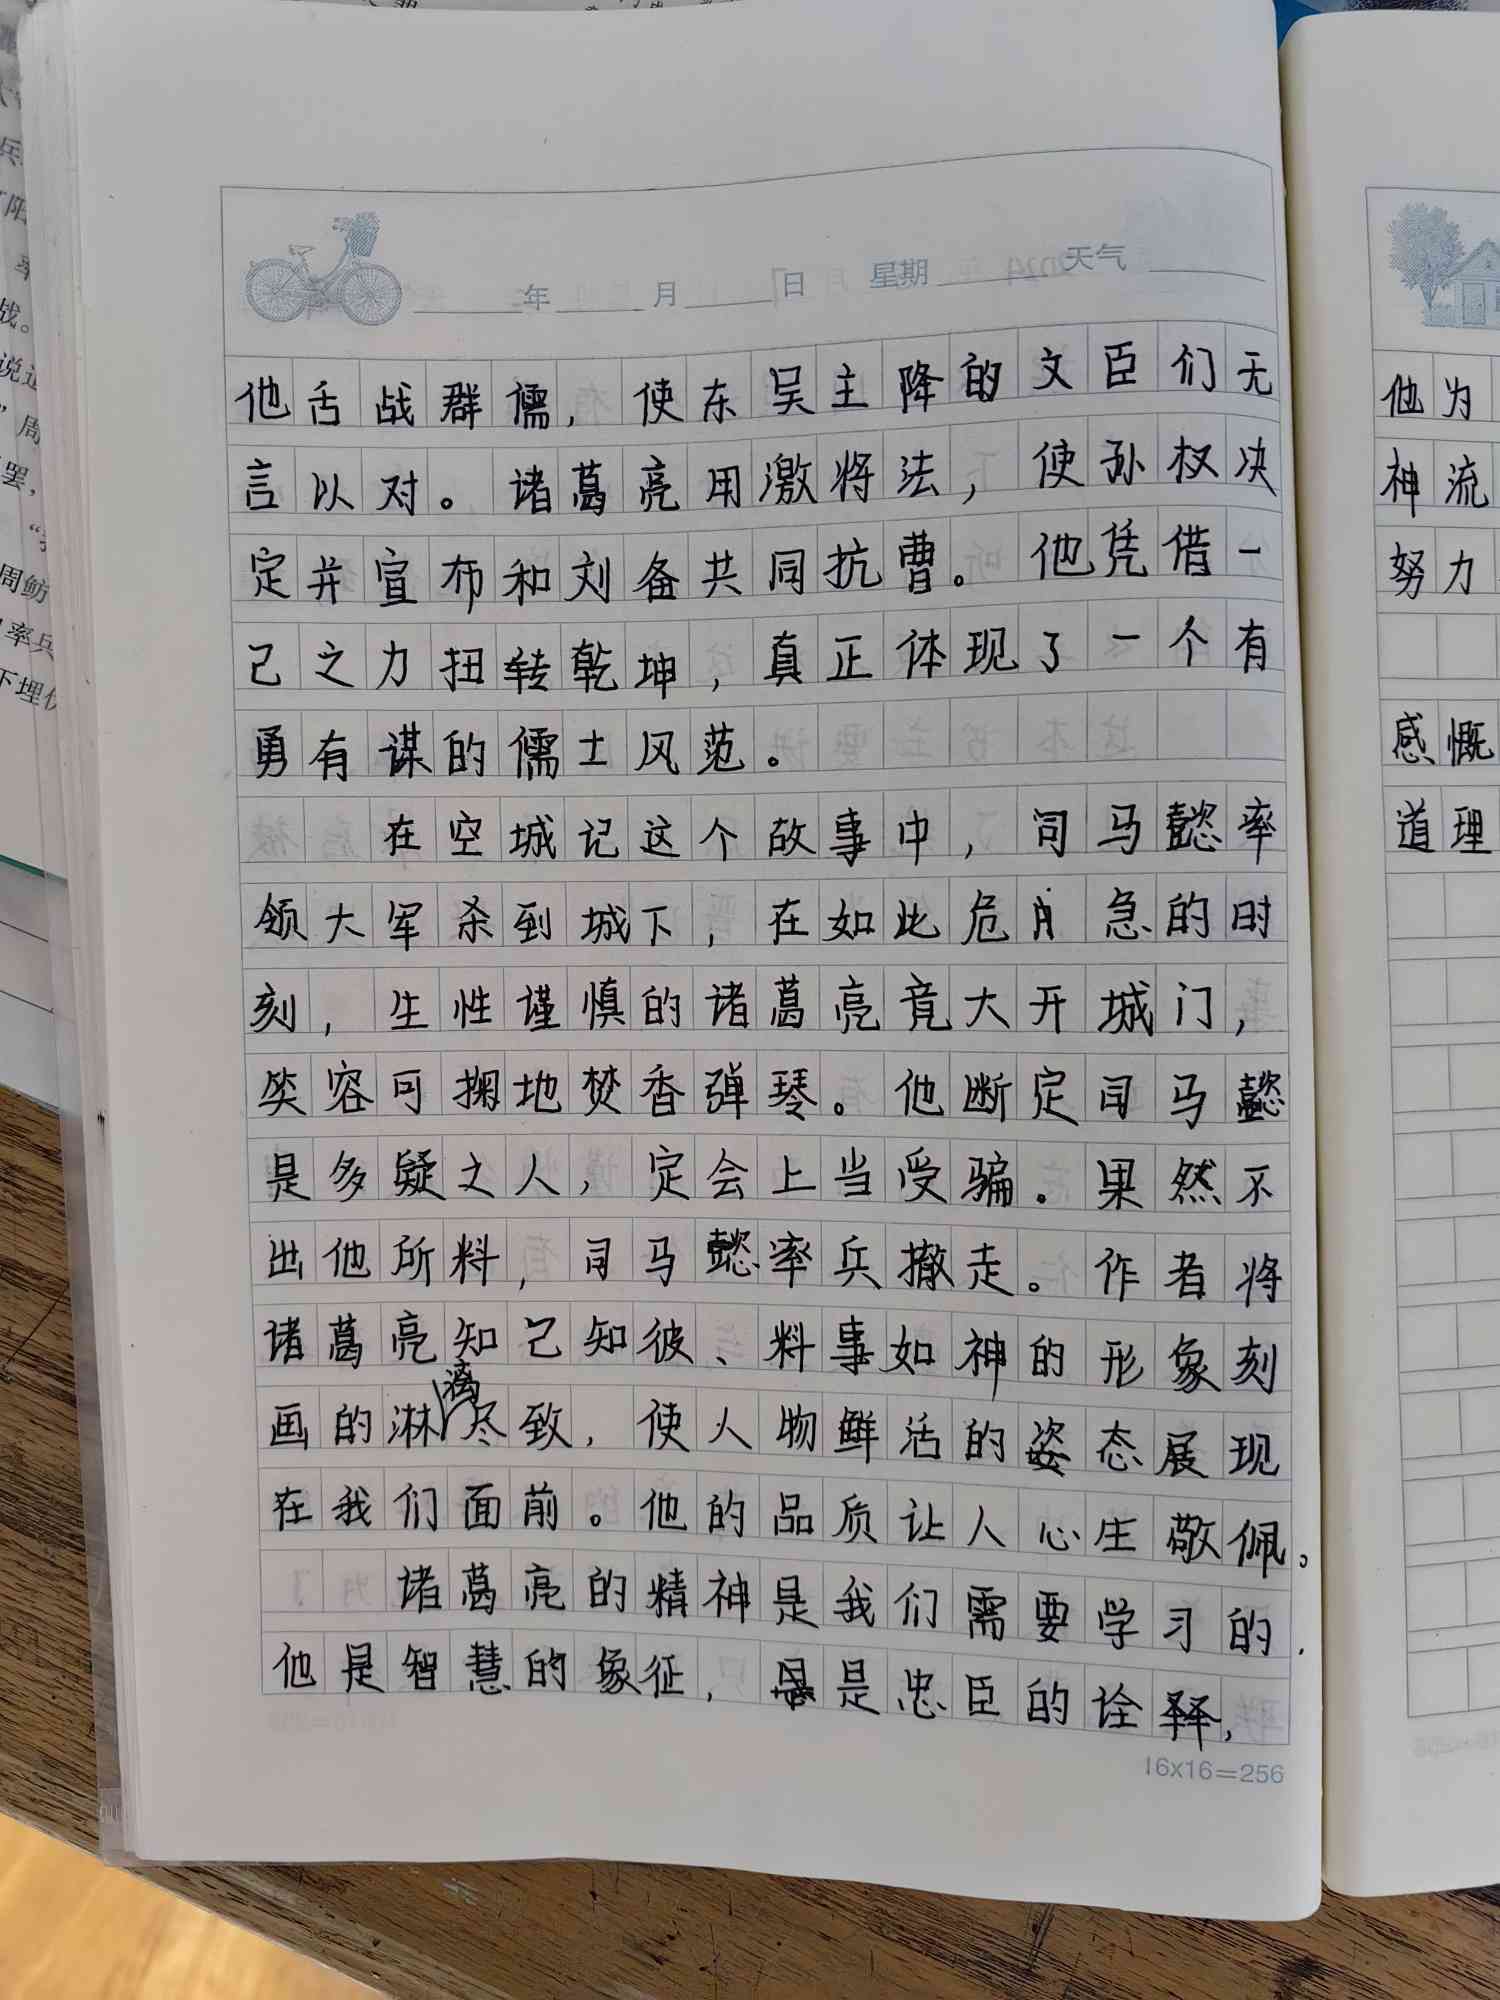 年 月 日 星期 天气
他舌战群儒，使东吴主降的文臣们无
言以对。诸葛亮用激将法，使孙权决
定并宣布和刘备共同抗曹。他凭借一
己之力扭转乾坤，真正体现了一个有
勇有谋的儒士风范。
在空城记这个故事中，司马懿率
领大军杀到城下，在如此危肖急的时
刻，生性谨慎的诸葛亮竟大开城门，
笑容可掬地焚香弹琴。他断定司马懿
是多疑之人，定会上当受骗。果然不
出他所料，司马懿率兵撤走。作者将
诸葛亮知己知彼、料事如神的形象刻
画的淋漓尽致，使人物鲜活的姿态展现
在我们面前。他的品质让人心生敬佩。
诸葛亮的精神是我们需要学习的，
他是智慧的象征，是忠臣的诠释，
16x16=256
他为
神流
努力
感慨
道理
兵
阳
战。
说过
”周
罢，
周鲂
率兵
下埋伏